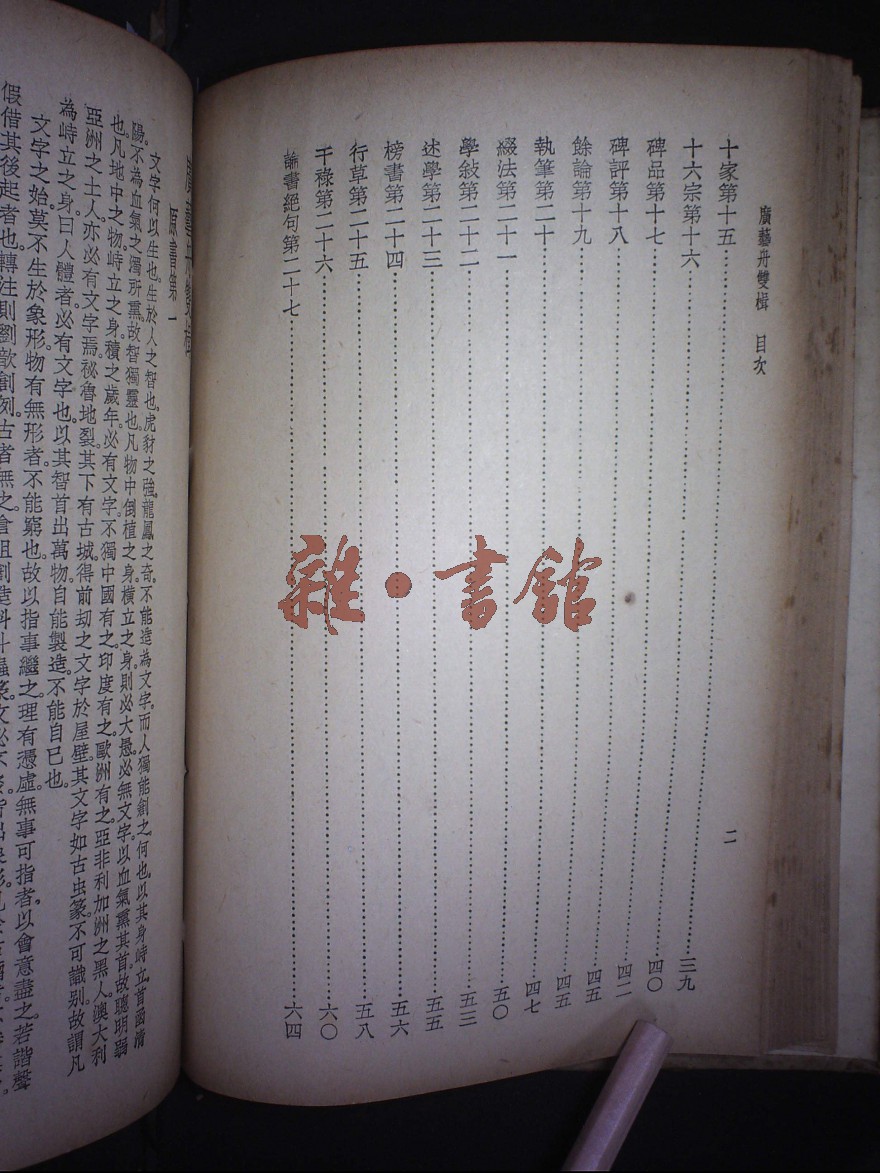 廣藝舟雙楫 目次
二
十家第十五……三九
十六宗第十六……四〇
碑品第十七……四二
碑評第十八……四五
餘論第十九……四五
執筆第二十……四七
綴法第二十一……五〇
學敍第二十二……五三
述學第二十三……五五
榜書第二十四……五六
行草第二十五……五八
干祿第二十六……六〇
論書絕句第二十七……六四
雜·書館
廣藝舟雙楫
原書第一
文字何以生也。生於人之智也。虎豹之強。龍鳳之奇。不能造為文字。而人獨能創之。何也。以其身峙立。首函清
陽。不為血氣之濁所熏。故智獨靈也。凡物中倒植之身。橫立之身。則必大愚。必無文字。以血氣熏其首。故聰明弱
也。凡地中之物。峙立之身。積之歲年。必有文字。不獨中國有之。印度有之。歐洲有之。亞非利加洲之黑人。澳大利
亞洲之土人。亦必有文字焉。祕魯地裂。其下有古城。得前劫之文字於屋壁。其文字如古虫篆。不可識别。故謂凡
為峙立之身。曰人體者。必有文字也。以其智首出萬物。自能製造。不能自已也。
文字之始。莫不生於象形。物有無形者。不能窮也。故以指事繼之。理有憑虛。無事可指者。以會意盡之。若諧聲
假借。其後起者也。轉注則劉歆創例。古者無之。倉沮創造科斗蟲篆。文必不